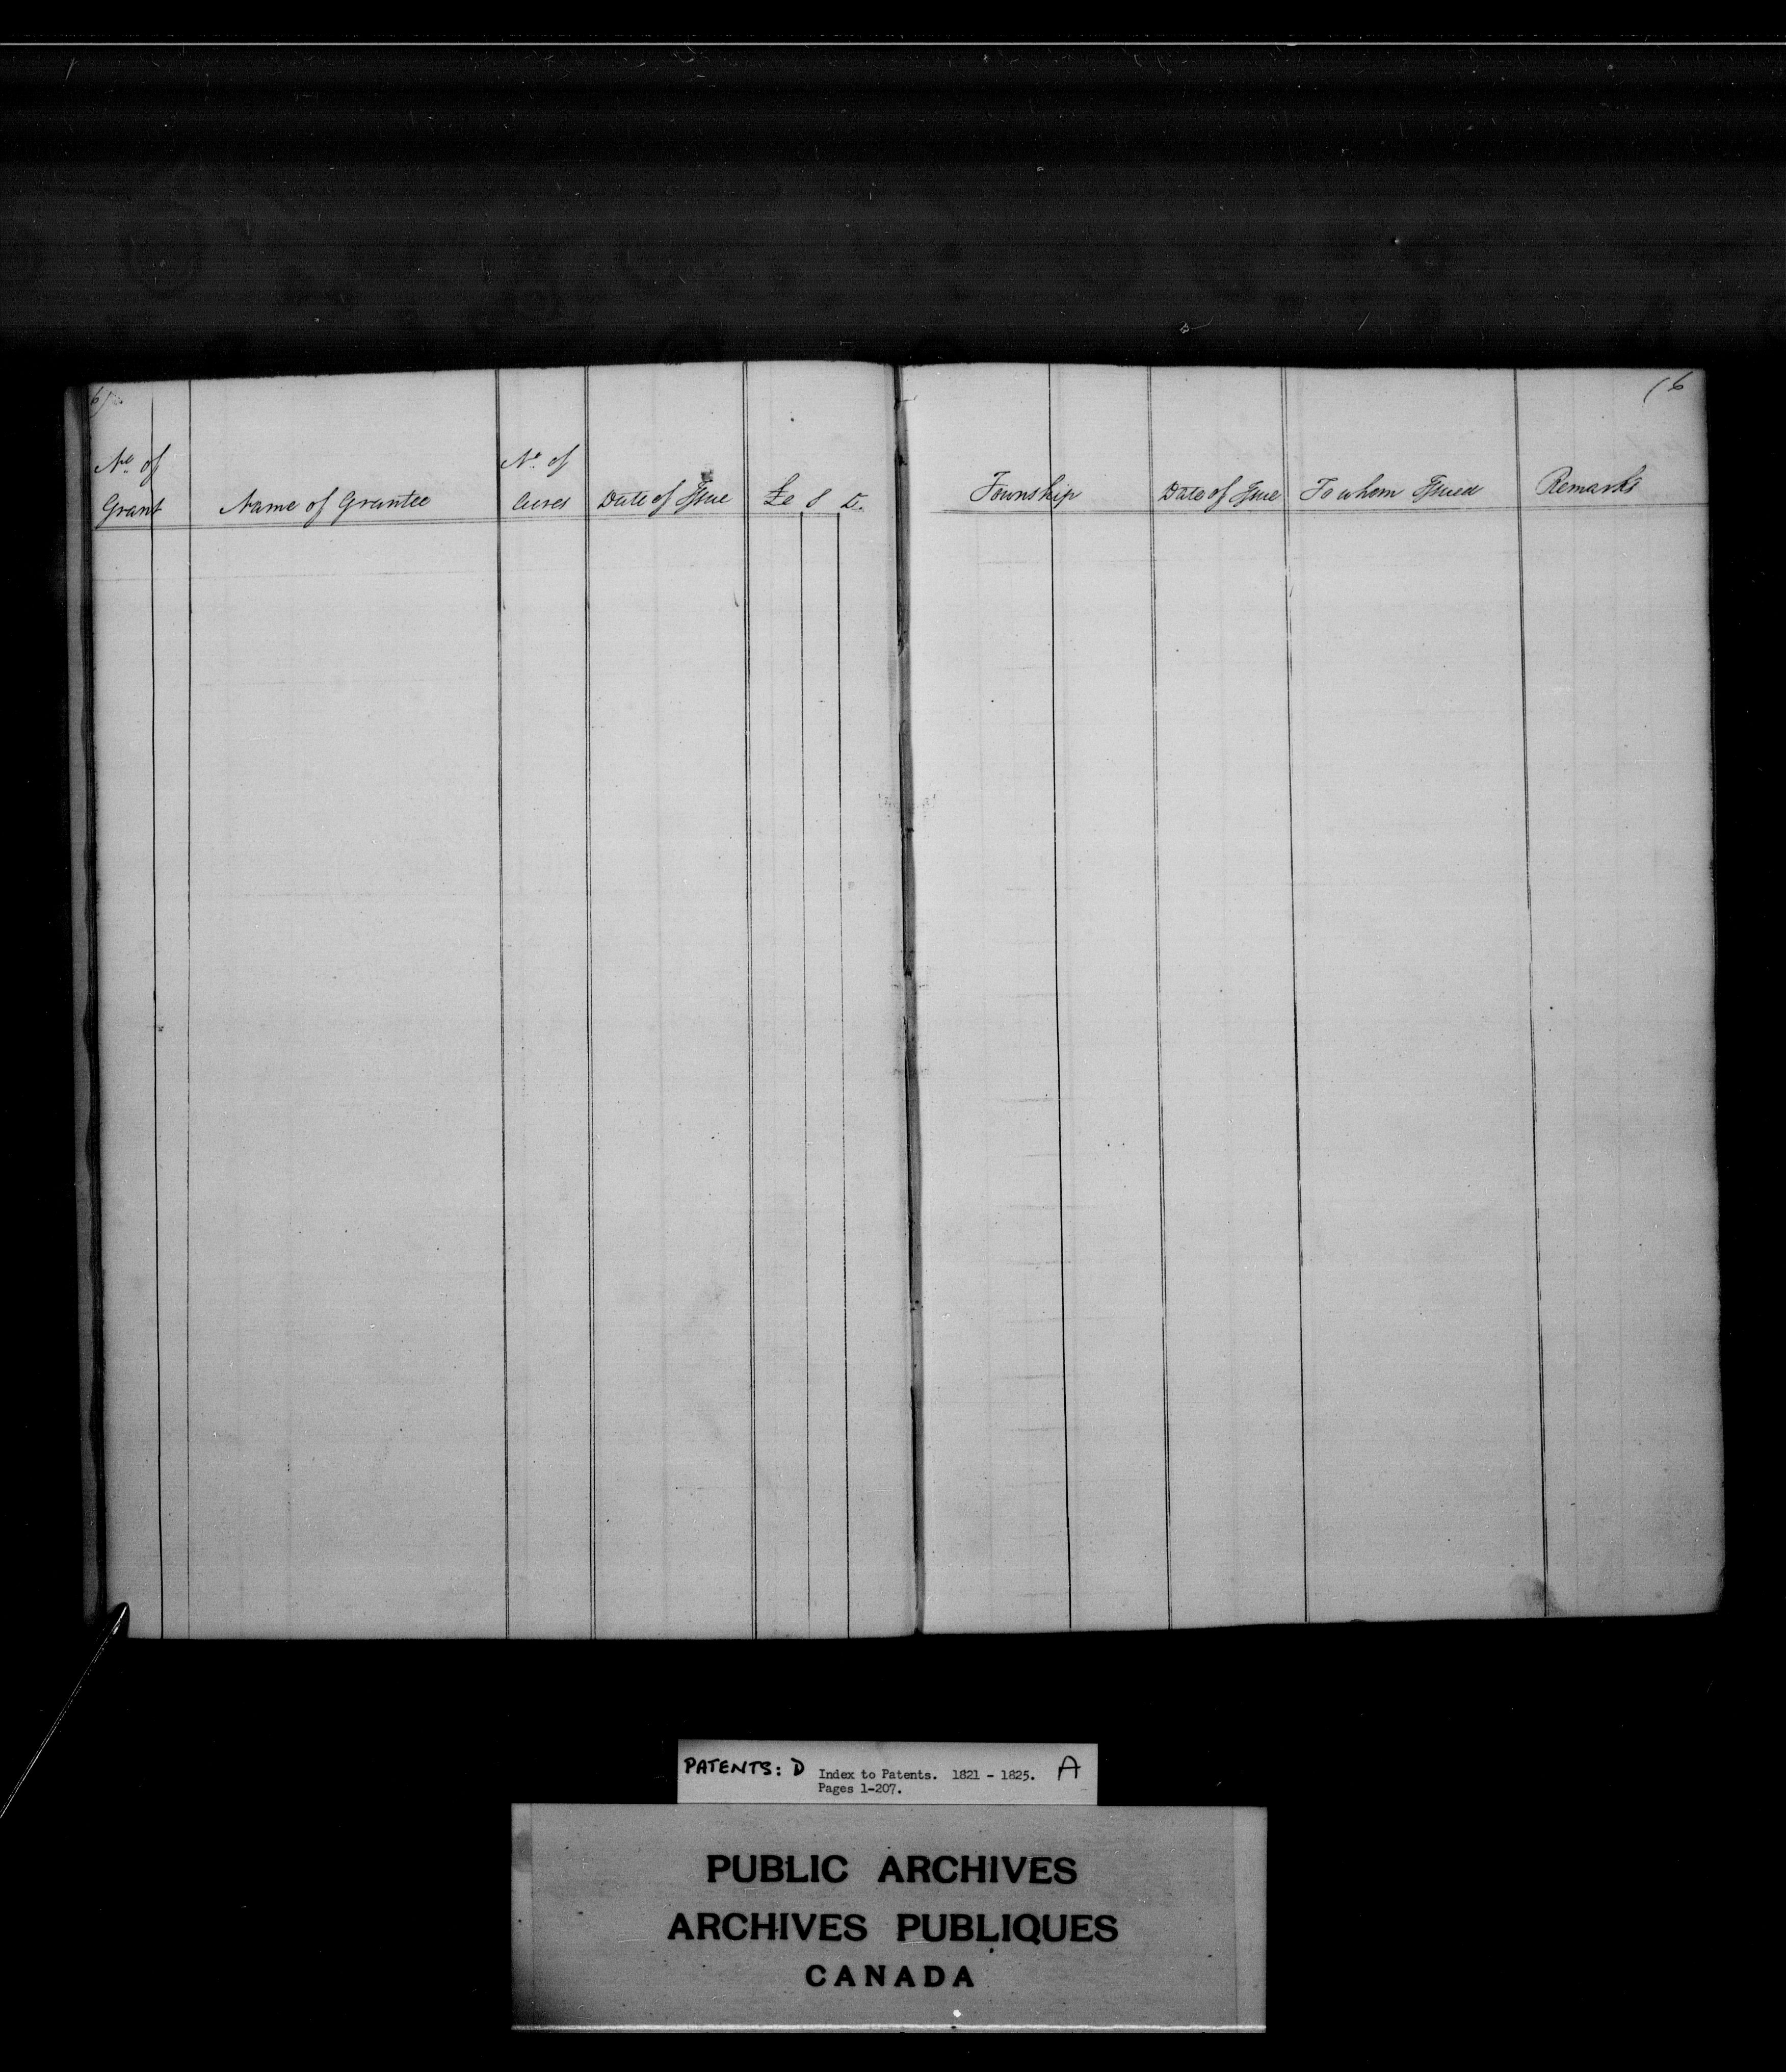 6)
No. of
Grant
Name of Grantee
No. of
Acres
Date of Issue
£ S D.
(6
Township
Date of Issue
To whom Issued
Remarks
PATENTS: D Index to Patents. 1821 - 1825. A
Pages 1-207.
PUBLIC ARCHIVES
ARCHIVES PUBLIQUES
CANADA